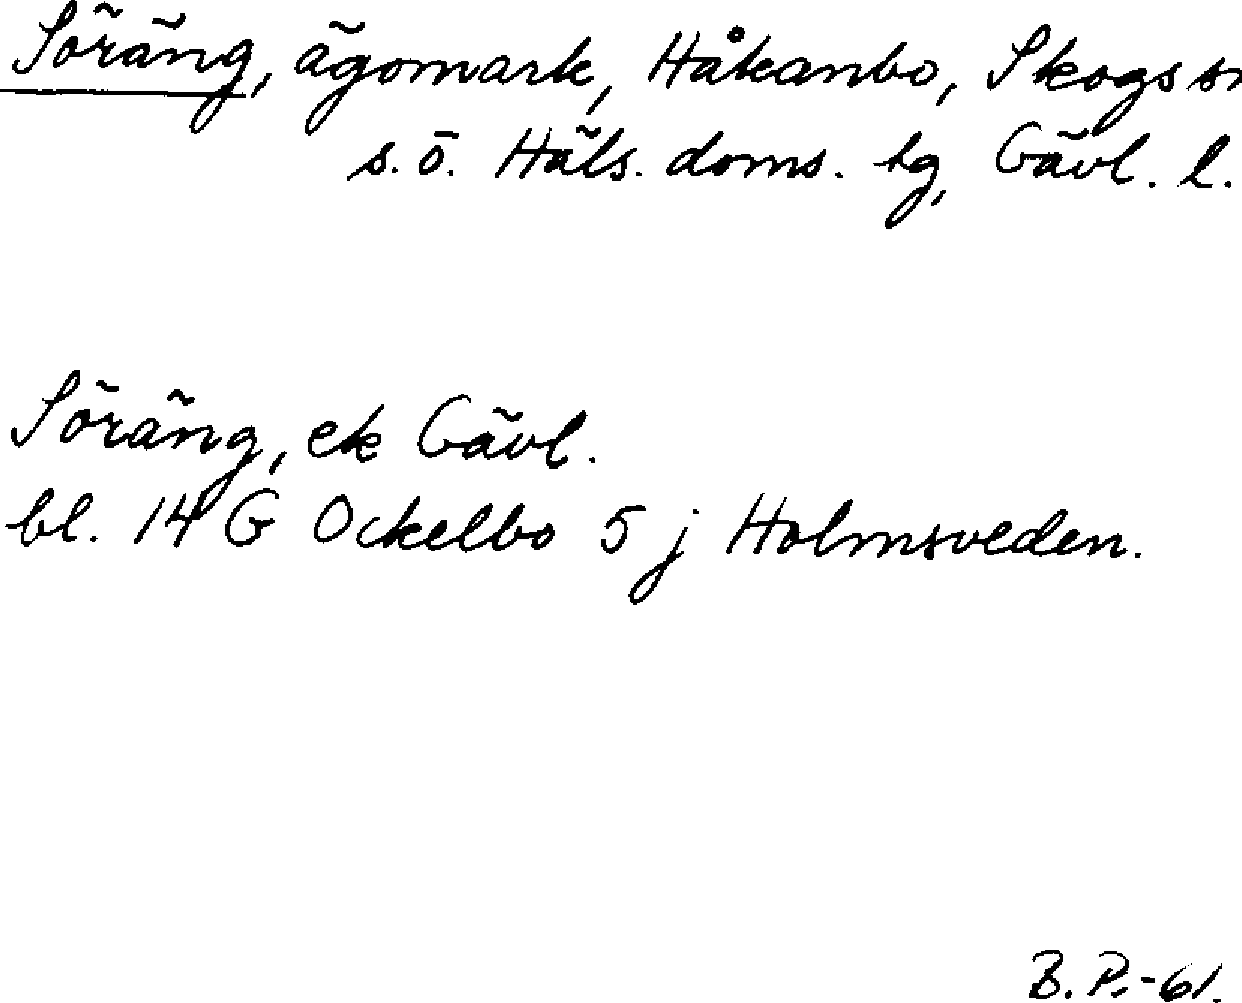 Söräng, ägomark, Håkanbo, Skogs sn
s.ö. Häls. doms. tg, Gävl. l.
Söräng, ek Gävl.
bl. 14 G Ockelbo 5 j Holmsveden.
B.P.-61.